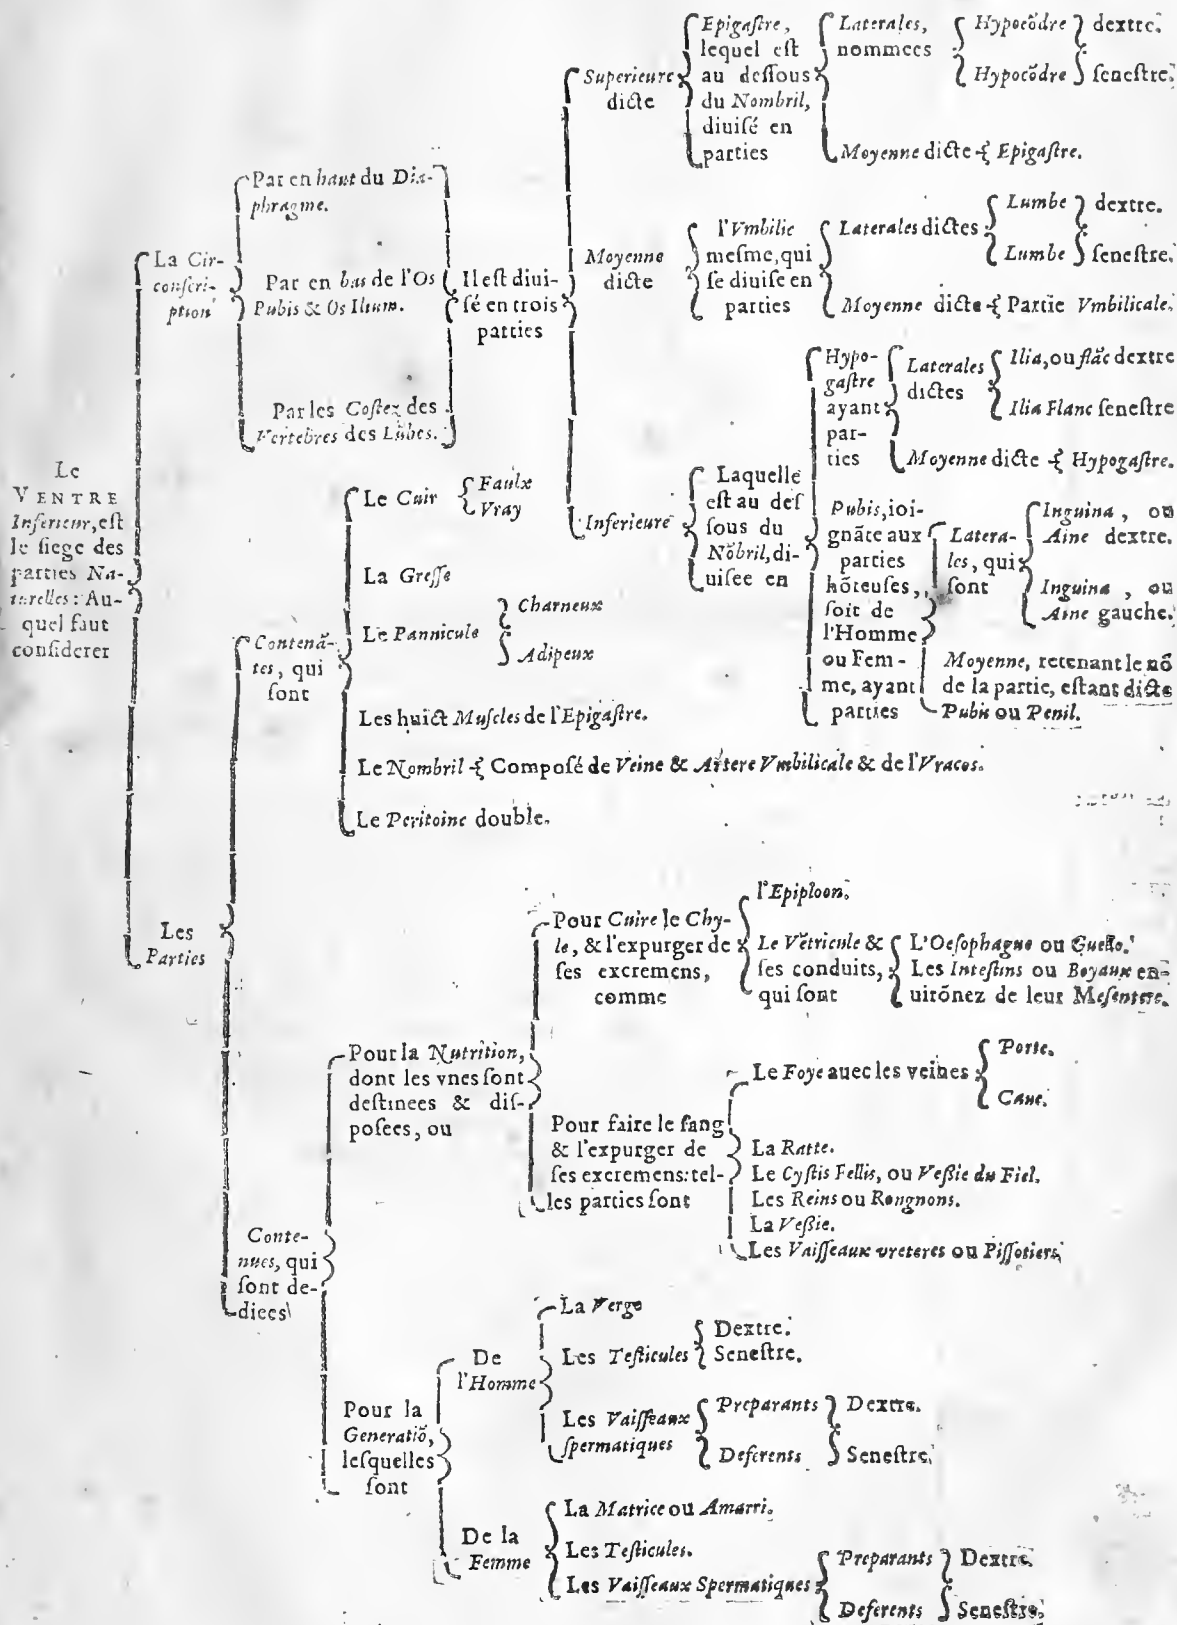 Le
VENTRE
Inferieur, est
le siege des
parties Na-
turelles: Au-
quel faut
considerer
La Cir-
conscri-
ption
Par en haut du Dia-
phragme.
Par en bas de l'Os
Pubis & Os Ilium.
Par les Costez des
Vertebres des Lũbes.
Il est diui-
sé en trois
parties
Superieure
dicte
Epigastre,
lequel est
au dessous
du Nombril,
diuisé en
parties
Laterales,
nommees
Hypocõdre
Hypocõdre
dextre.
senestre.
Moyenne dicte Epigastre.
Moyenne
dicte
l'Vmbilic
mesme, qui
se diuise en
parties
Laterales dictes
Lumbe
Lumbe
dextre.
senestre.
Moyenne dicte Partie Vmbilicale.
Inferieure
Laquelle
est au des
sous du
Nõbril, di-
uisee en
Hypo-
gastre
ayant
par-
ties
Laterales
dictes
Ilia, ou flãc dextre
Ilia Flanc senestre
Moyenne dicte Hypogastre.
Pubis, ioi-
gnãte aux
parties
hõteuses,
soit de
l'Homme
ou Fem-
me, ayant
parties
Latera-
les, qui
sont
Inguina, ou
Aine dextre.
Inguina, ou
Aine gauche.
Moyenne, retenant le nõ
de la partie, estant dicte
Pubis ou Penil.
Les
Parties
Contenã-
tes, qui
sont
Le Cuir
Faulx
Vray
La Gresse
Le Pannicule
Charneux
Adipeux
Les huict Muscles de l'Epigastre.
Le Nombril Composé de Veine & Artere Vmbilicale & de l'Vracos.
Le Peritoine double.
Conte-
nues, qui
sont de-
diees
Pour la Nutrition,
dont les vnes sont
destinees & dis-
posees, ou
Pour Cuire le Chy-
le, & l'expurger de
ses excremens,
comme
l'Epiploon.
Le Vẽtricule &
ses conduits,
qui sont
L'Oesophague ou Gueле.
Les Intestins ou Boyaux en-
uirõnez de leur Mesentere.
Pour faire le sang
& l'expurger de
ses excremens: tel-
les parties sont
Le Foye auec les veines
Porte.
Caue.
La Ratte.
Le Cystis Fellis, ou Vessie du Fiel.
Les Reins ou Rongnons.
La Vessie.
Les Vaisseaux vreteres ou Pissotiers.
Pour la
Generatiõ,
lesquelles
sont
De
l'Homme
La Verge
Les Testicules
Dextre.
Senestre.
Les Vaisseaux
spermatiques
Preparants
Deferents
Dextre.
Senestre.
De la
Femme
La Matrice ou Amarri.
Les Testicules.
Les Vaisseaux Spermatiques
Preparants
Deferents
Dextre.
Senestre.